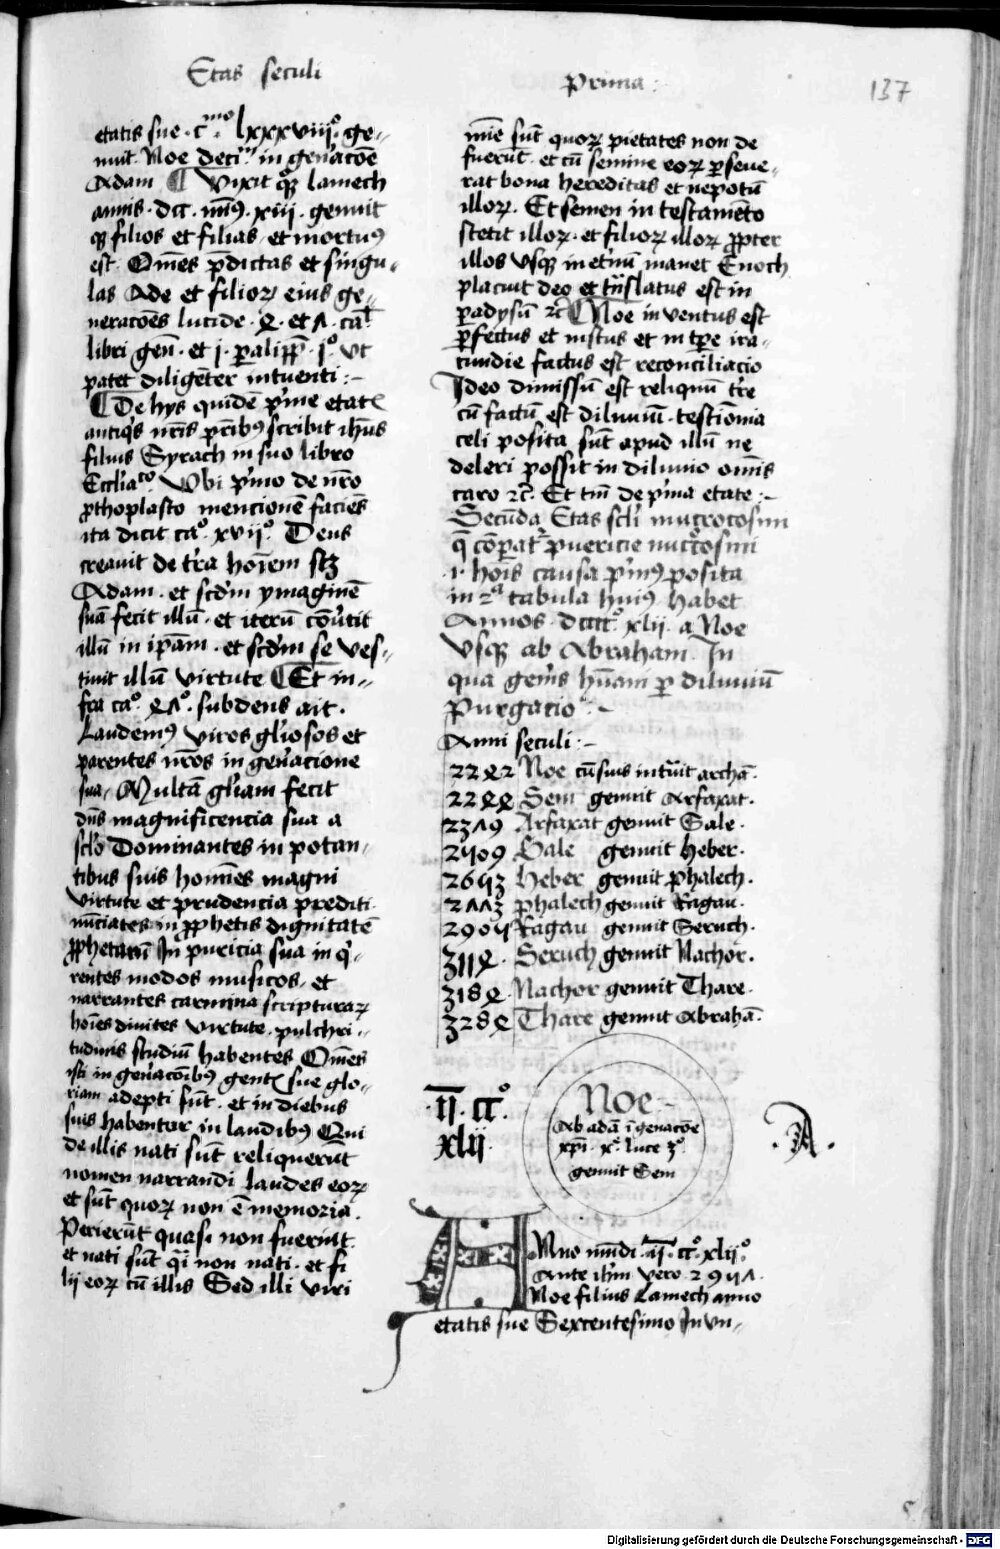 Etas seculi
Prima:
137
etatis sue · cͫͦ · lxxxviijͦ · ge-
nuit · Noe deciͫ in gen̄acōe
Adam ¶ Vixit qꝫ lamech
annis · dcc · min9 · xiij · genuit
qꝫ filios et filias · et mortu9
est · Om̄es p̄dictas et singu-
las Ade et filioꝝ eius ge-
neracōes lucide · 4 · et 5 · ca
libri gen̄ · et j · paralipp̄ · jͦ · vt
patet diligēter intuenti :-
¶ De hys quidē p̄me etatꝭ
antiq̄s nr̄is pr̄ib9 scribit ihūs
filius Syrach in suo libro
Eccl̄iaͨͦ · Vbi p̄mo de nr̄o
ꝓthoplasto mencionē faciēs
ita dicit caͦ · xvijͦ · Deus
creauit de tr̄a hoīem sꝫ
Adam · et scd̄m ymaginē
suā fecit illū · et iterū cōu̓tit
illū in ip̄am · et scd̄m se ves-
tiuit illū virtute ¶ Et in-
fra caͦ · 44ͦ · subdens ait ·
Laudem9 viros gl̄iosos et
parentes nr̄os in gen̄acione
sua · Multā gl̄iam fecit
dn̄s magnificencia sua a
sclo Dominantes in potan-
tibus suis homīes magni
virtute et prudencia prediti
nūciātes in ꝓphetis dignitatē
ꝓphetarū In puricia sua in q̄-
rentes modos musicos · et
narrantes carmina scripturaꝝ
hoīes diuites virtute · pulchri-
tudinis studiū habentes Om̄es
isti in gen̄acōib9 gentꝭ sue glo-
riam adepti sūt · et in diebus
suis habentur in laudib9 Qui
de illis nati sūt reliquerūt
nomen narrandi laudes eoꝝ
et sūt quoꝝ non ē memoria ·
Perierūt quasi non fuerint
et nati sūt q̄i non nati · et fi
lii eoꝝ cū illis Sed illi viri
mīe sūt quoꝝ pietates non de
fuerūt · et cū semine eoꝝ ꝑseue-
rat bona hereditas et nepotū
illoꝝ · Et semen in testamēto
stetit illoꝝ · et filioꝝ illoꝝ ꝓpter
illos vsqꝫ in et̄nū manet Enoch
placuit deo et tn̄slatus est in
ꝑadysū ⁊c̄ ¶ Noe in ventus est
ꝑfectus et iustus et in tp̄e ira-
cundie factus est reconciliacio
Ideo dimissū est reliquū tr̄e
cū factū est diluuiū · testīonia
celi posita sūt apud illū ne
deleri possit in diluuio om̄is
caro ⁊c̄ · Et tm̄ de p̄ma etate :-
Secūda Etas scl̄i macrocosmi
q̄ cōparat͛ puericie micͦcosmi
·i· hoīs causa p̄m9 posita
in 2ᵃ tabula hui9 habet
Annos · dccccͦ xlij · a Noe
vsqꝫ ab Abraham · In
qua gen̄is hūam ꝑ diluuiū
Purgacio :-
Anni seculi :-
2242 Noe cū suis intͣuit archā ·
2244 Sem genuit Arfaxat ·
2379 Arfaxat genuit Sale ·
2509 Sale genuit Heber ·
2643 Heber genuit Phalech ·
2773 Phalech genuit Ragau ·
2905 Ragau genuit Seruch ·
3114 · Seruch genuit Nachor ·
3184 · Nachor genuit Thare ·
3284 Thare genuit Abrahā ·
· ij · ccͦ ·
xlij ·
Noe -
Ab adā ī genacōe
xp̄i · xͦ · luce 3ͦ
genuit Sem
· A ·
Anno mūdi · ij · ccͦ xlijͦ ·
Ante ih̄m vero · 2957 ·
Noe filius Lamech anno
etatis sue Sexcentesimo In vn-
Digitalisierung gefördert durch die Deutsche Forschungsgemeinschaft - DFG